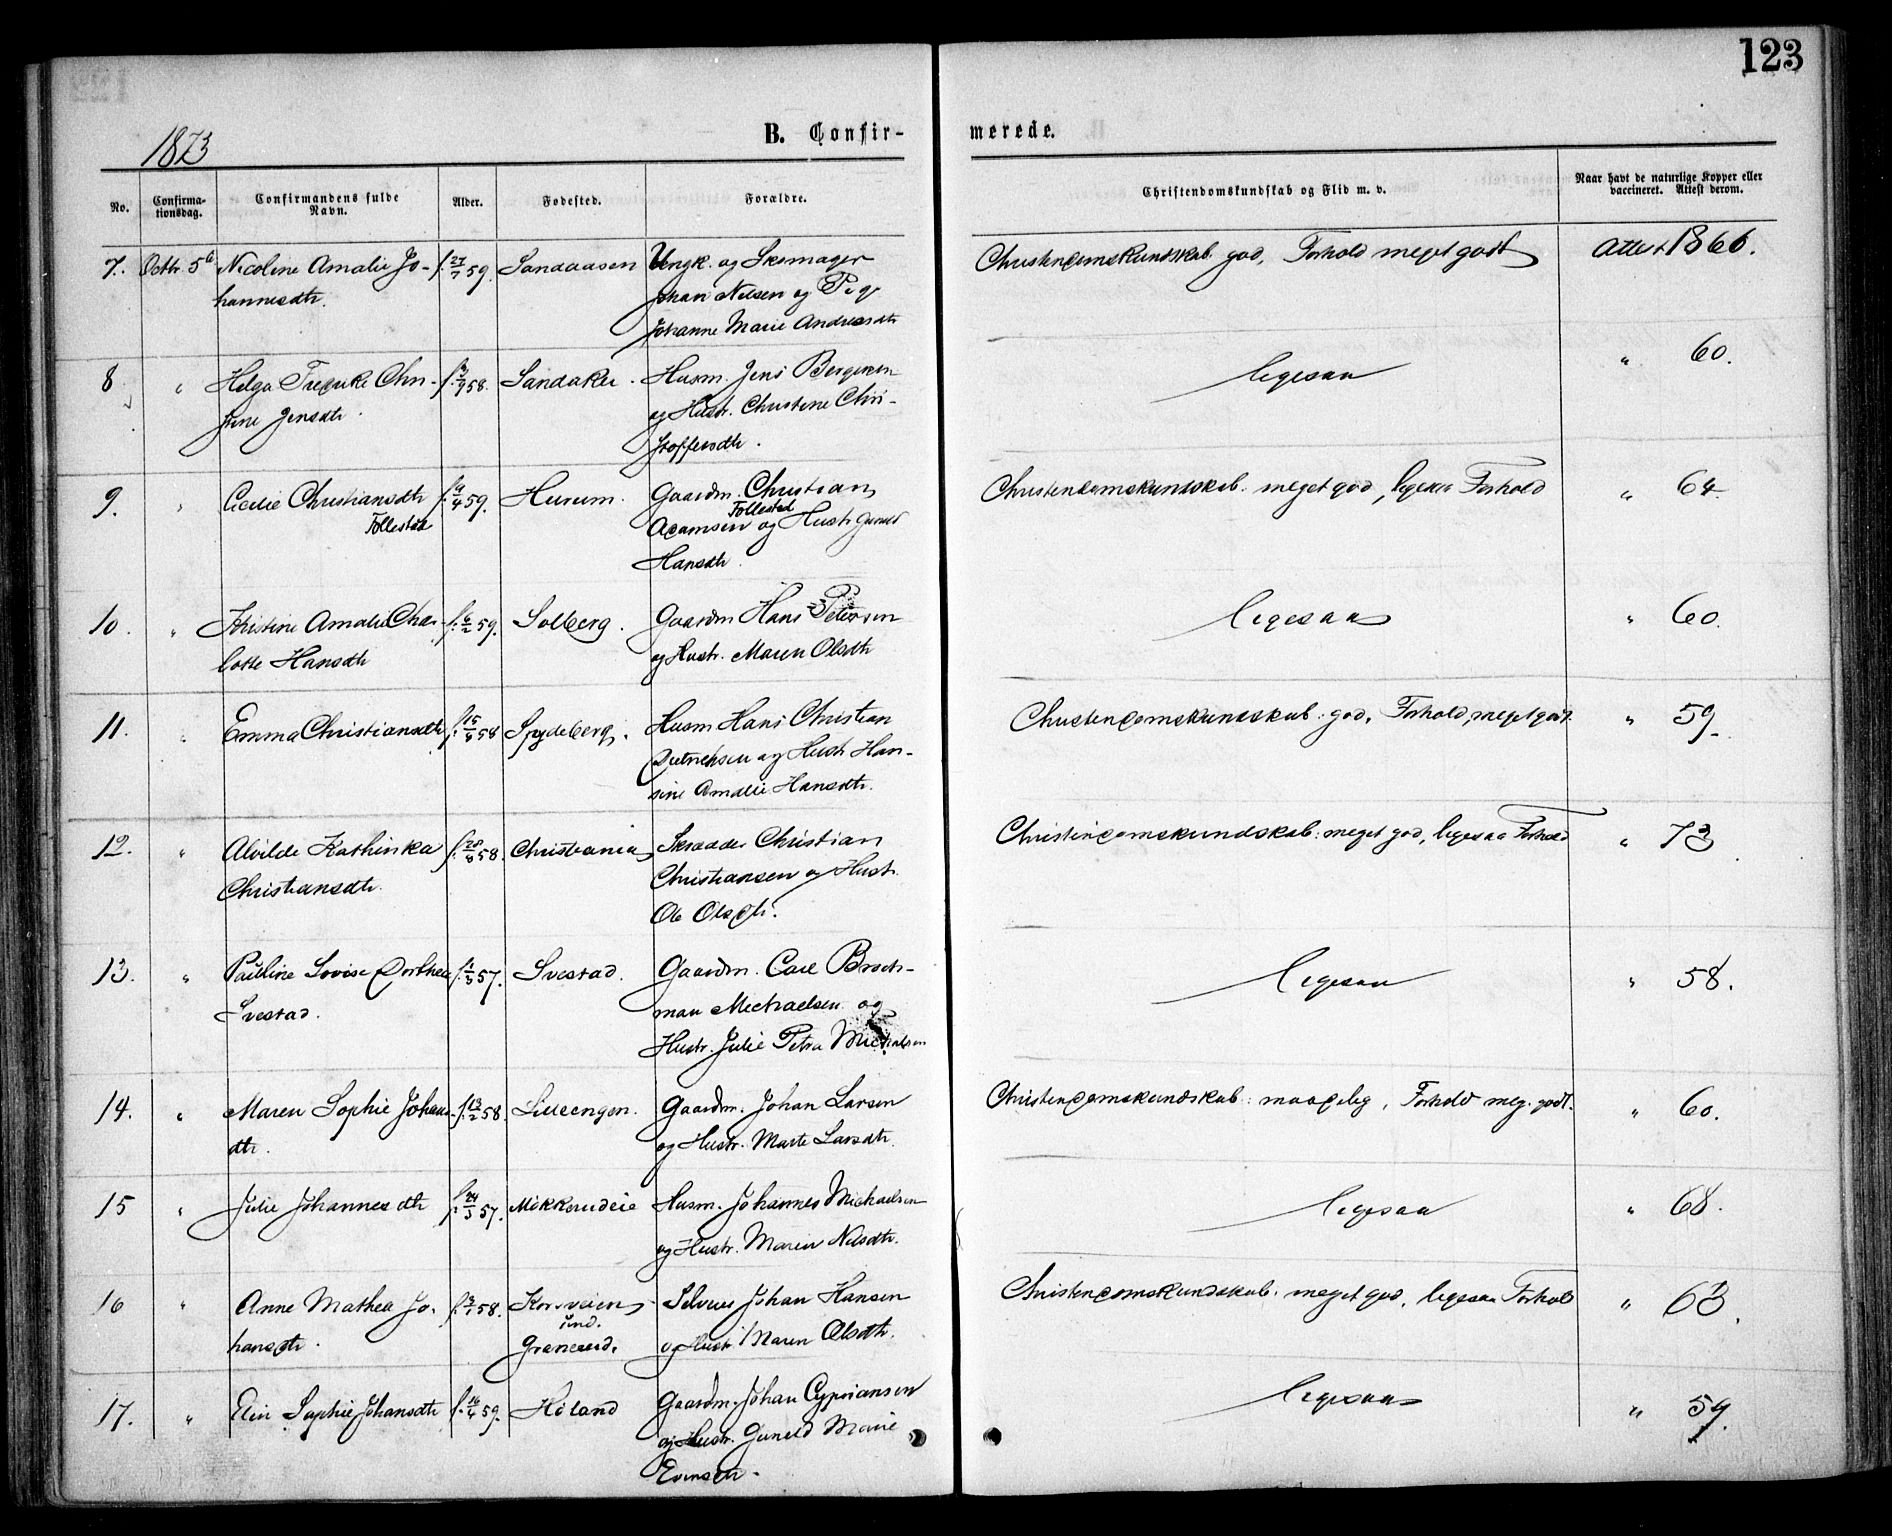 123
1873
B. Confir- merede.
No. Confirma-tionsdag. Confirmandens fulde Navn. Alder. Fødested. Forældre. Christendomskundskab og Flid m. v. Naar havt de naturlige Kopper eller vaccineret. Attest derom.
7. Octbr. 5te Nicoline Amalie Jo- f. 27/7 59. Sandaasen Ungk. og Skomager Christendomskundskab god, Forhold meget godt Attest 1866.
hannesdtr. Johan Nilsen og Pige
Johanne Marie Andreasdtr
8 " Helga Fredrike Chri- 58. Sandaker. Husm. Jens Bergersen ligesaa " 60.
stine Jensdtr. og Hustr. Christine Chri-
stoffersdtr.
9. " Cecilie Christiansdtr 59. Hurum. Gaardm. Christian Christendomskundskab. meget god, ligesaa Forhold " 64.
Follestad Follestad
Adamsen og Hustr Gunild
Hansdtr.
10. " Kristine Amalie Char- f. 6/2 59. Solberg. Gaardm Hans Petersen ligesaa " 60.
lotte Hansdtr og Hustr. Maren Olsdtr
11. " Emma Christiansdtr 58 Spydeberg. Husm Hans Christian Christendomskundskab: god, Forhold, meget godt. " 59.
Dietrichsen og Hustr Han-
sine Amalie Hansdtr.
12. " Alvilde Kathinka f. 28/8 58. Christiania Skrædder Christian Christendomskundskab: meget god, ligesaa Forhold " 73.
Christiansdtr. Christiansen og Hustr.
Olsdtr.
13. " Pauline Lovise Dorthea 57. Svestad. Gaardm. Carl Broch- ligesaa " 58.
Svestad. man Michaelsen og
Hustr. Julie Petra Michalsen
14. " Maren Sophie Johans- f. 13/2 58. Lilleengen. Gaardm. Johan Larsen Christendomskundskab: maadelig, Forhold meg. godt. " 60.
dtr. og Hustr. Marte Larsdtr.
15 " Julie Johannesdtr f. 24/3 57. Mökkerudeie Husm. Johannes Michaelsen ligesaa " 68.
og Hustr. Maren Nilsdtr.
16 " Anne Mathea Jo- 58. Korsveien Selveier Johan Hansen Christendomskundskab. meget god, ligesaa Forhold " 63.
hansdtr. und. og Hustr Maren Olsdtr.
Granerud.
17. " Elin Sophie Johansdtr f. 16/4 59. Höland Gaardm. Johan Cypriansen ligesaa " 59.
og Hustr. Gunild Marie
Evensdtr.